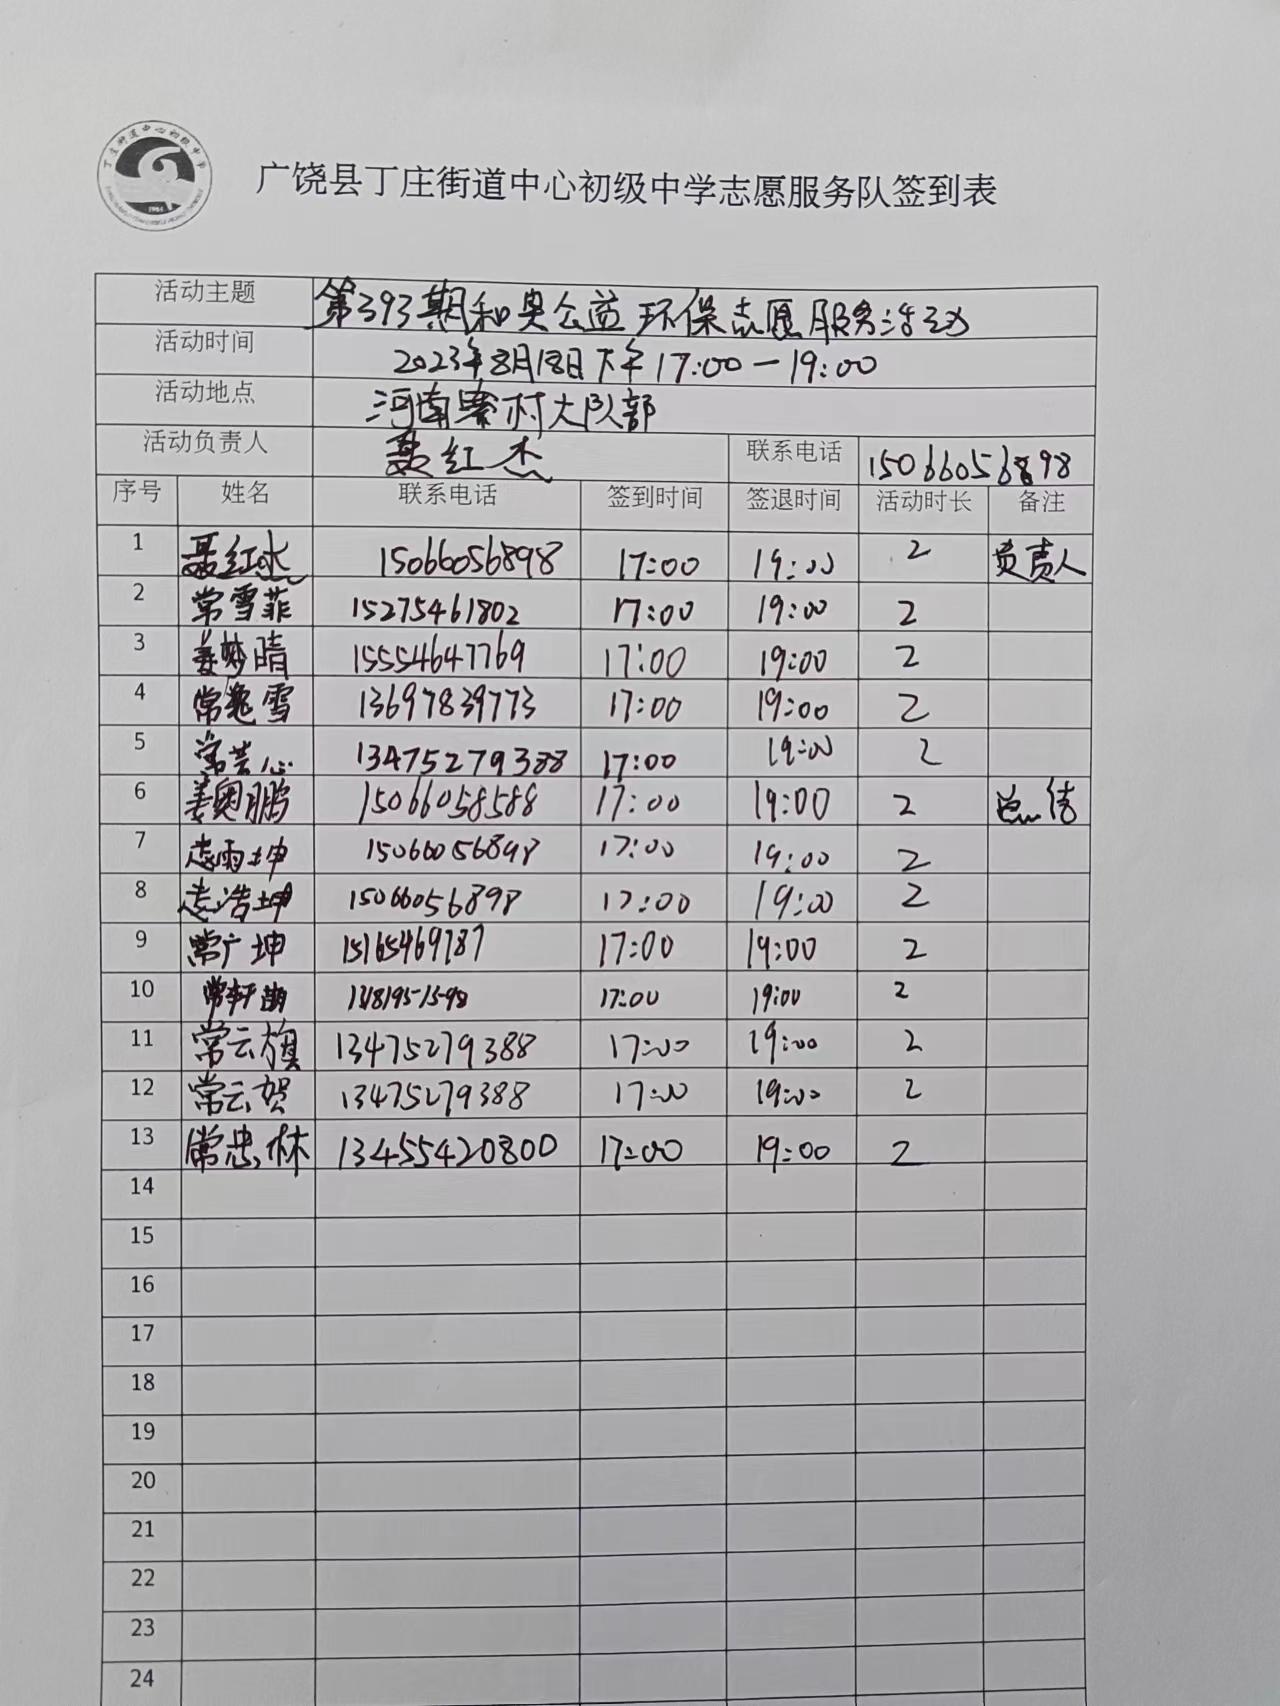 丁庄街道中心初级中学
1984
广饶县丁庄街道中心初级中学志愿服务队签到表
活动主题 第393期和奥公益环保志愿服务活动
活动时间 2023年8月18日下午17:00—19:00
活动地点 河南寨村大队部
活动负责人 聂红杰 联系电话 15066056898
序号 姓名 联系电话 签到时间 签退时间 活动时长 备注
1 聂红杰 15066056898 17:00 19:00 2 负责人
2 常雪菲 15275461802 17:00 19:00 2
3 姜妙晴 15554647769 17:00 19:00 2
4 常 雪 13697839773 17:00 19:00 2
5 常芸心 13475279388 17:00 19:00 2
6 姜奥鹏 15066058588 17:00 19:00 2 总结
7 雨坤 15066056898 17:00 19:00 2
8 浩坤 15066056898 17:00 19:00 2
9 常广坤 15165469787 17:00 19:00 2
10 常轩 17:00 19:00 2
11 常云旗 13475279388 17:00 19:00 2
12 常云贺 13475279388 17:00 19:00 2
13 常忠林 13455420800 17:00 19:00 2
14
15
16
17
18
19
20
21
22
23
24